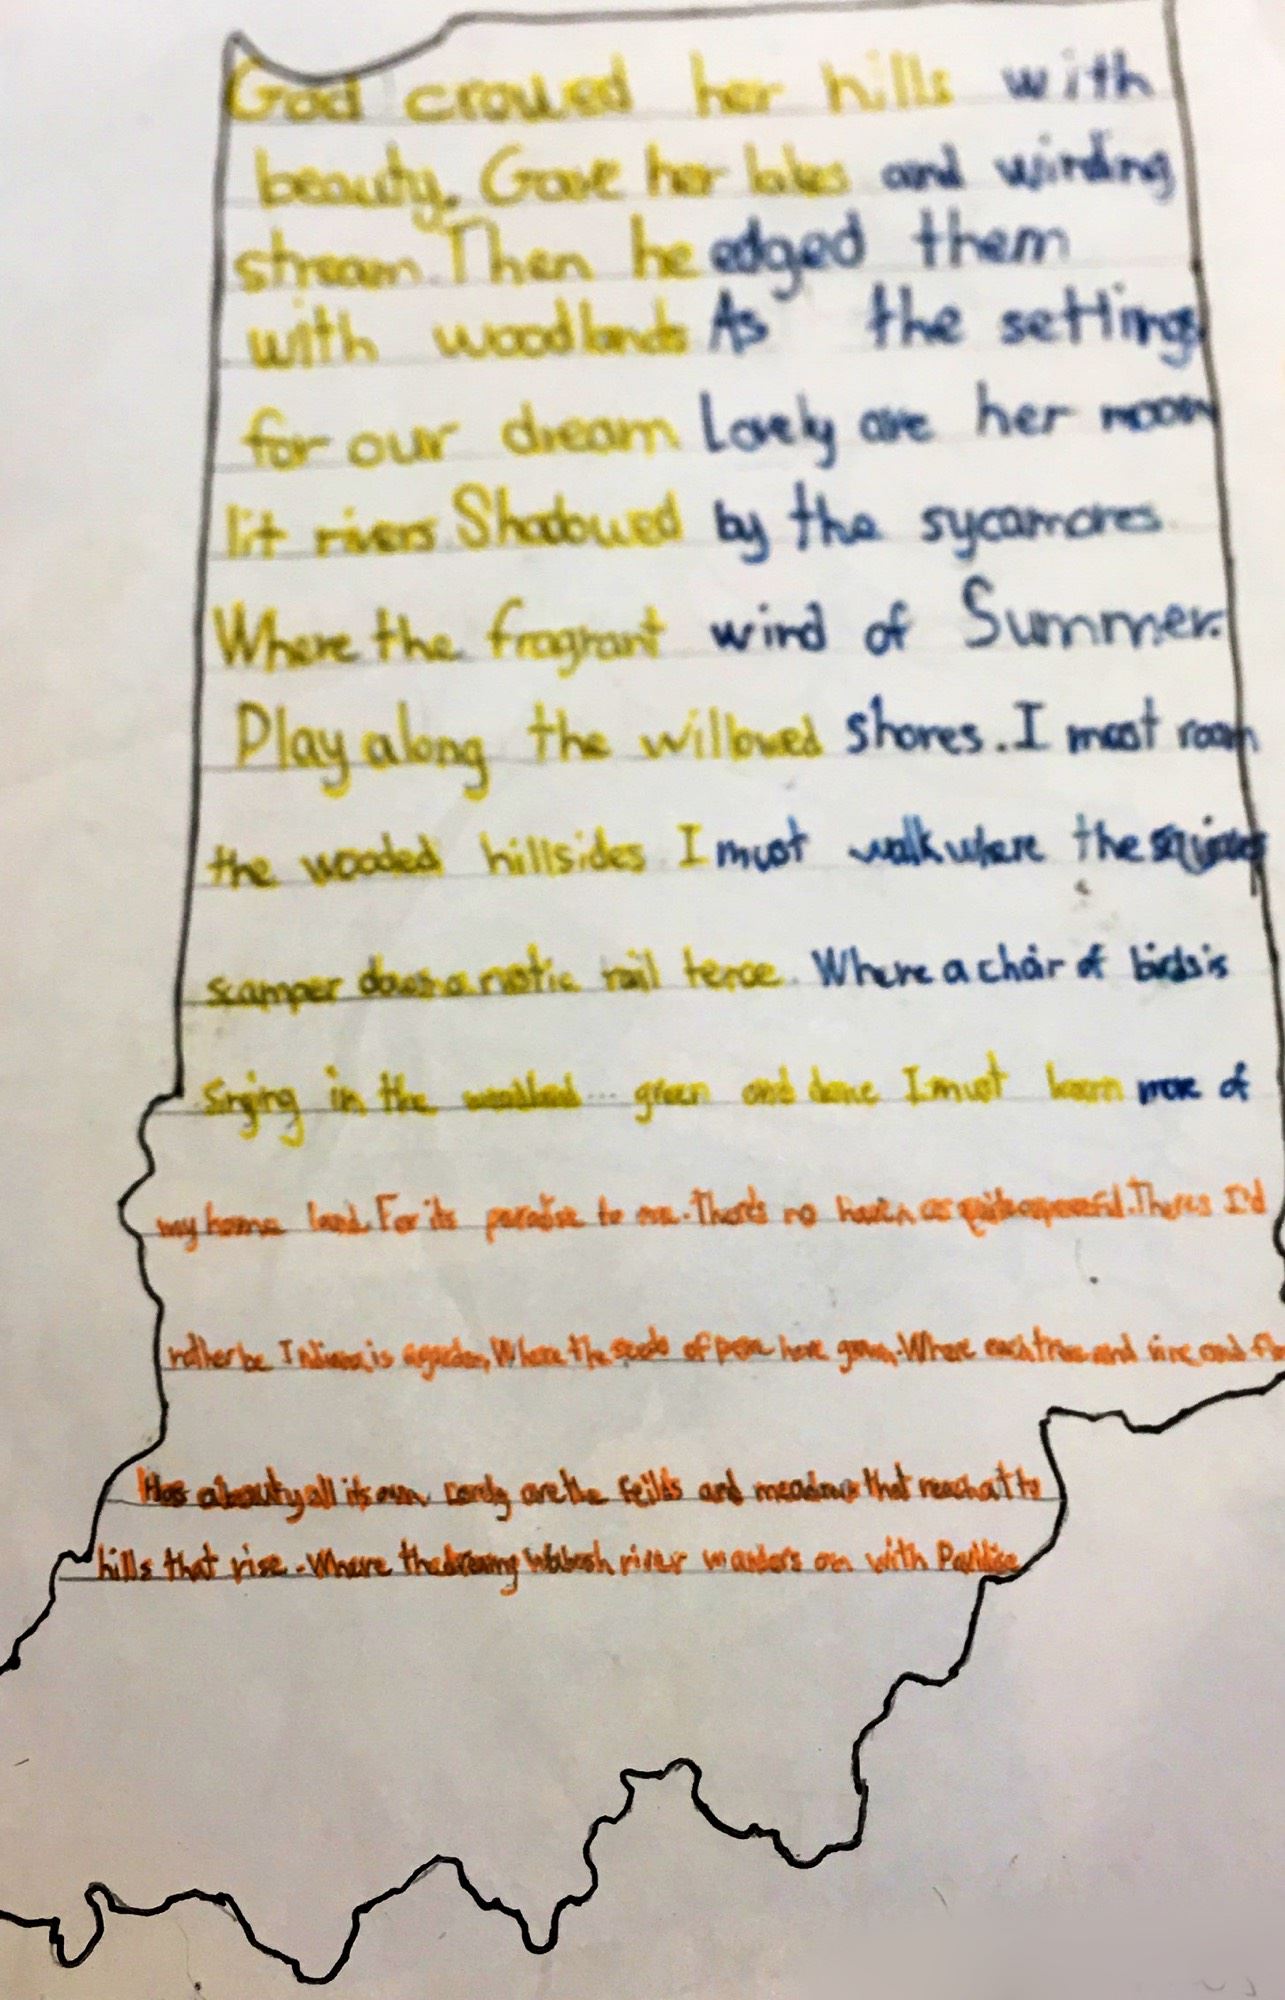 God crowed her hills with
beauty. Gave her lakes and winding
stream. Then he edged them
with woodlands As the settings
for our dream Lovely are her moon
lit rivers Shadowed by the sycamores
Where the fragrant wind of Summer.
Play along the willowed shores. I must roam
the wooded hillsides I must walk where the
scamper down a rustic rail Where a choir of birds is
Singing in the green and I must learn more of
my home land. For its paradise to me. There's no haven as quite as peaceful. Theres I'd
rather be Indiana is a garden, Where the seeds of peace have grown. Where each tree and vine and
Has a beauty all its own Lovely are the feilds and meadows that reach
hills that rise. Where the Wabash river wanders on with